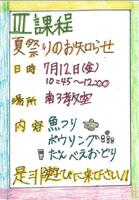 Ⅲ課程
夏祭りのお知らせ
日時 7月12日(金)
10:45~12:00
場所 南3教室
内容 魚つり
ボウリング
たんべえおどり
是非遊びに来て下さい!!